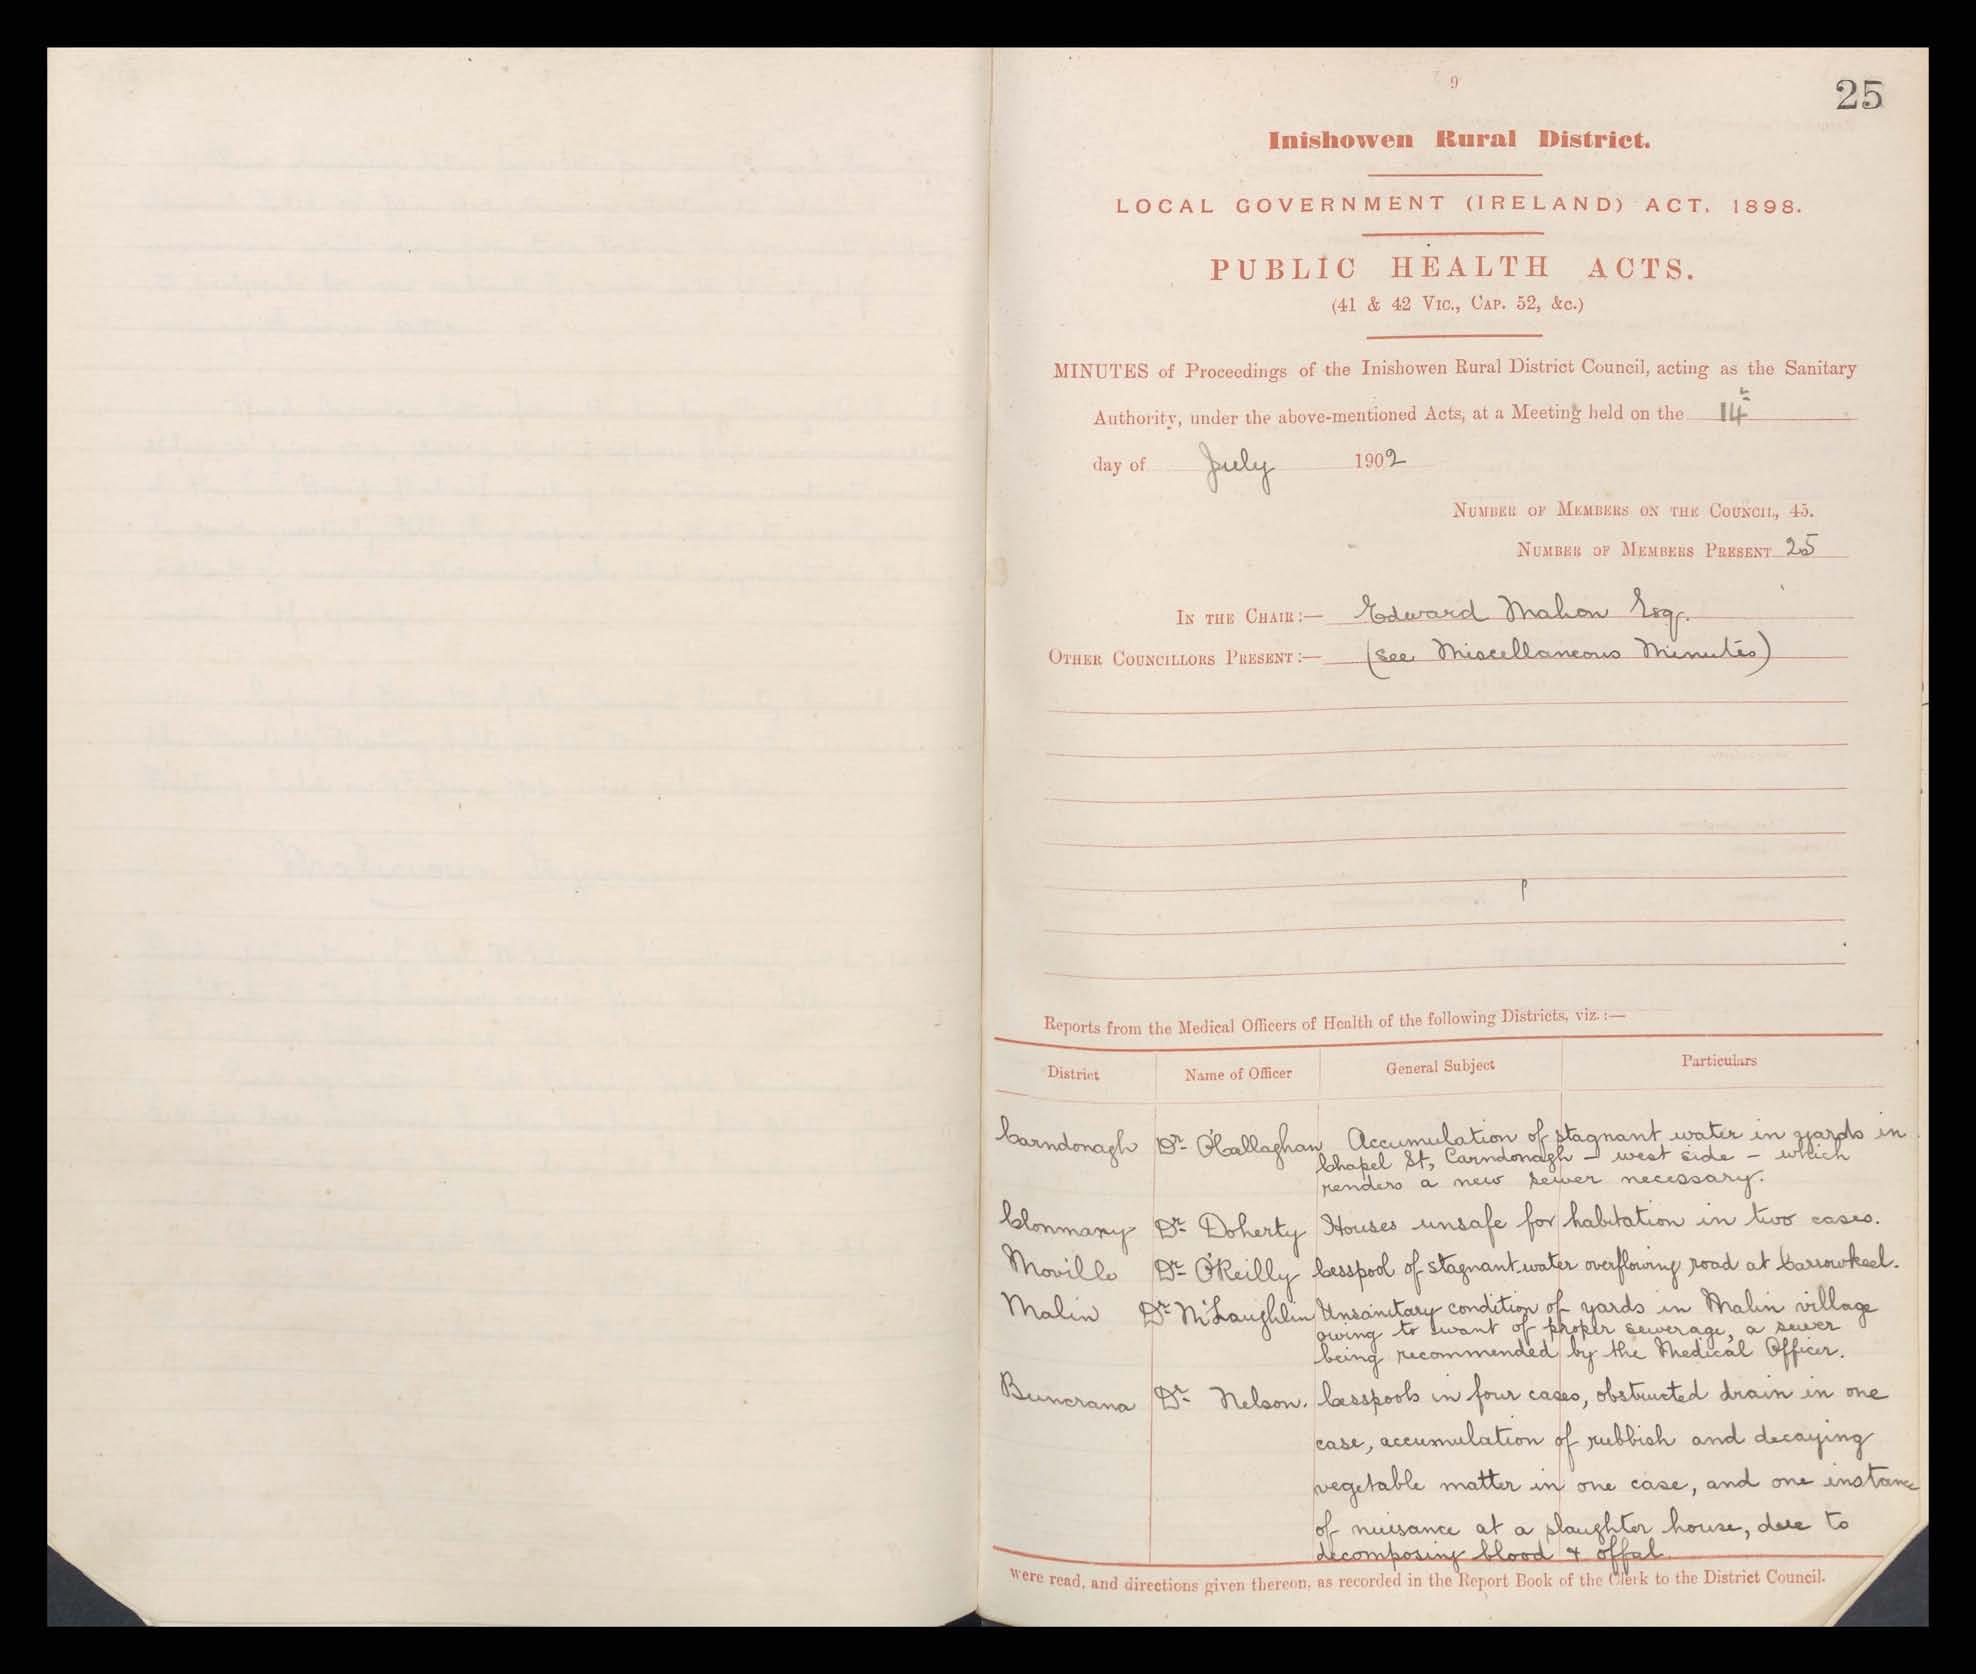 9
25
Inishowen Rural District.
LOCAL GOVERNMENT (IRELAND) ACT, 1898.
PUBLIC HEALTH ACTS.
(41 & 42 Vic., Cap. 52, &c.)
MINUTES of Proceedings of the Inishowen Rural District Council, acting as the Sanitary
Authority, under the above-mentioned Acts, at a Meeting held on the 14th
day of July 1902
Number of Members on the Council, 45.
Number of Members Present 25
In the Chair:— Edward Mahon Esq.
Other Councillors Present:— (see Miscellaneous Minutes)
Reports from the Medical Officers of Health of the following Districts, viz.:—
District Name of Officer General Subject Particulars
Carndonagh Dr O'Callaghan Accumulation of stagnant water in yards in
Chapel St, Carndonagh – west side – which
renders a new sewer necessary.
Clonmany Dr Doherty Houses unsafe for habitation in two cases.
Moville Dr O'Reilly Cesspool of stagnant water overflowing road at Carrowkeel.
Malin Dr McLaughlin Unsanitary condition of yards in Malin village
owing to want of proper sewerage, a sewer
being recommended by the Medical Officer.
Buncrana Dr Nelson. Cesspools in four cases, obstructed drain in one
case, accumulation of rubbish and decaying
vegetable matter in one case, and one instance
of nuisance at a slaughter house, due to
decomposing blood & offal.
were read, and directions given thereon, as recorded in the Report Book of the Clerk to the District Council.